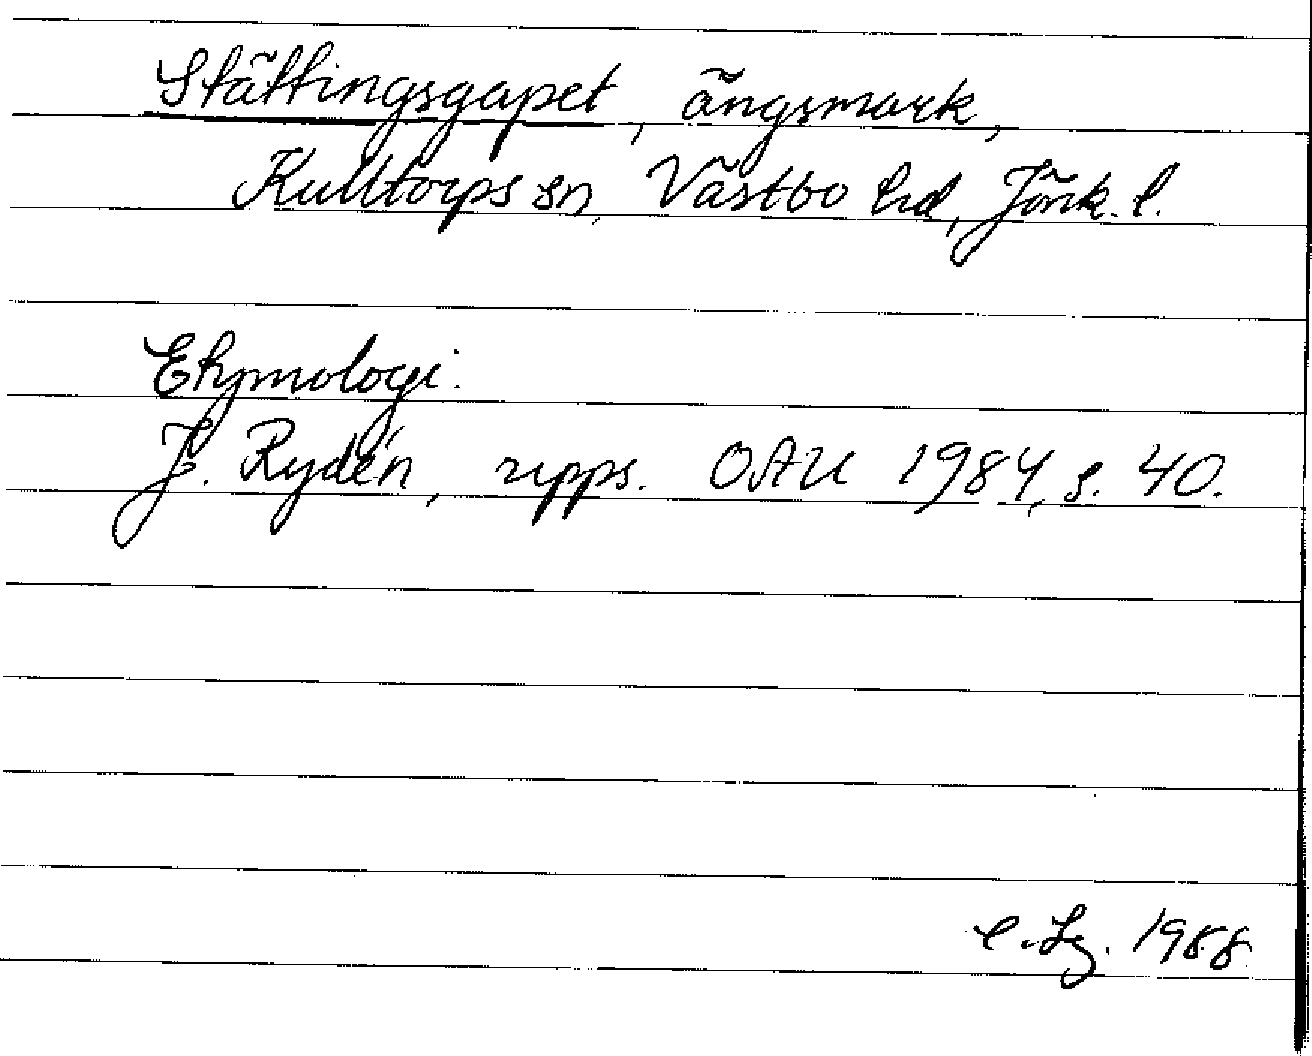 Stättingsgapet, ängsmark,
Kulltorps sn, Västbo hd, Jönk. l.
Etymologi:
J. Rydén, upps. OAU 1984, s. 40.
1988